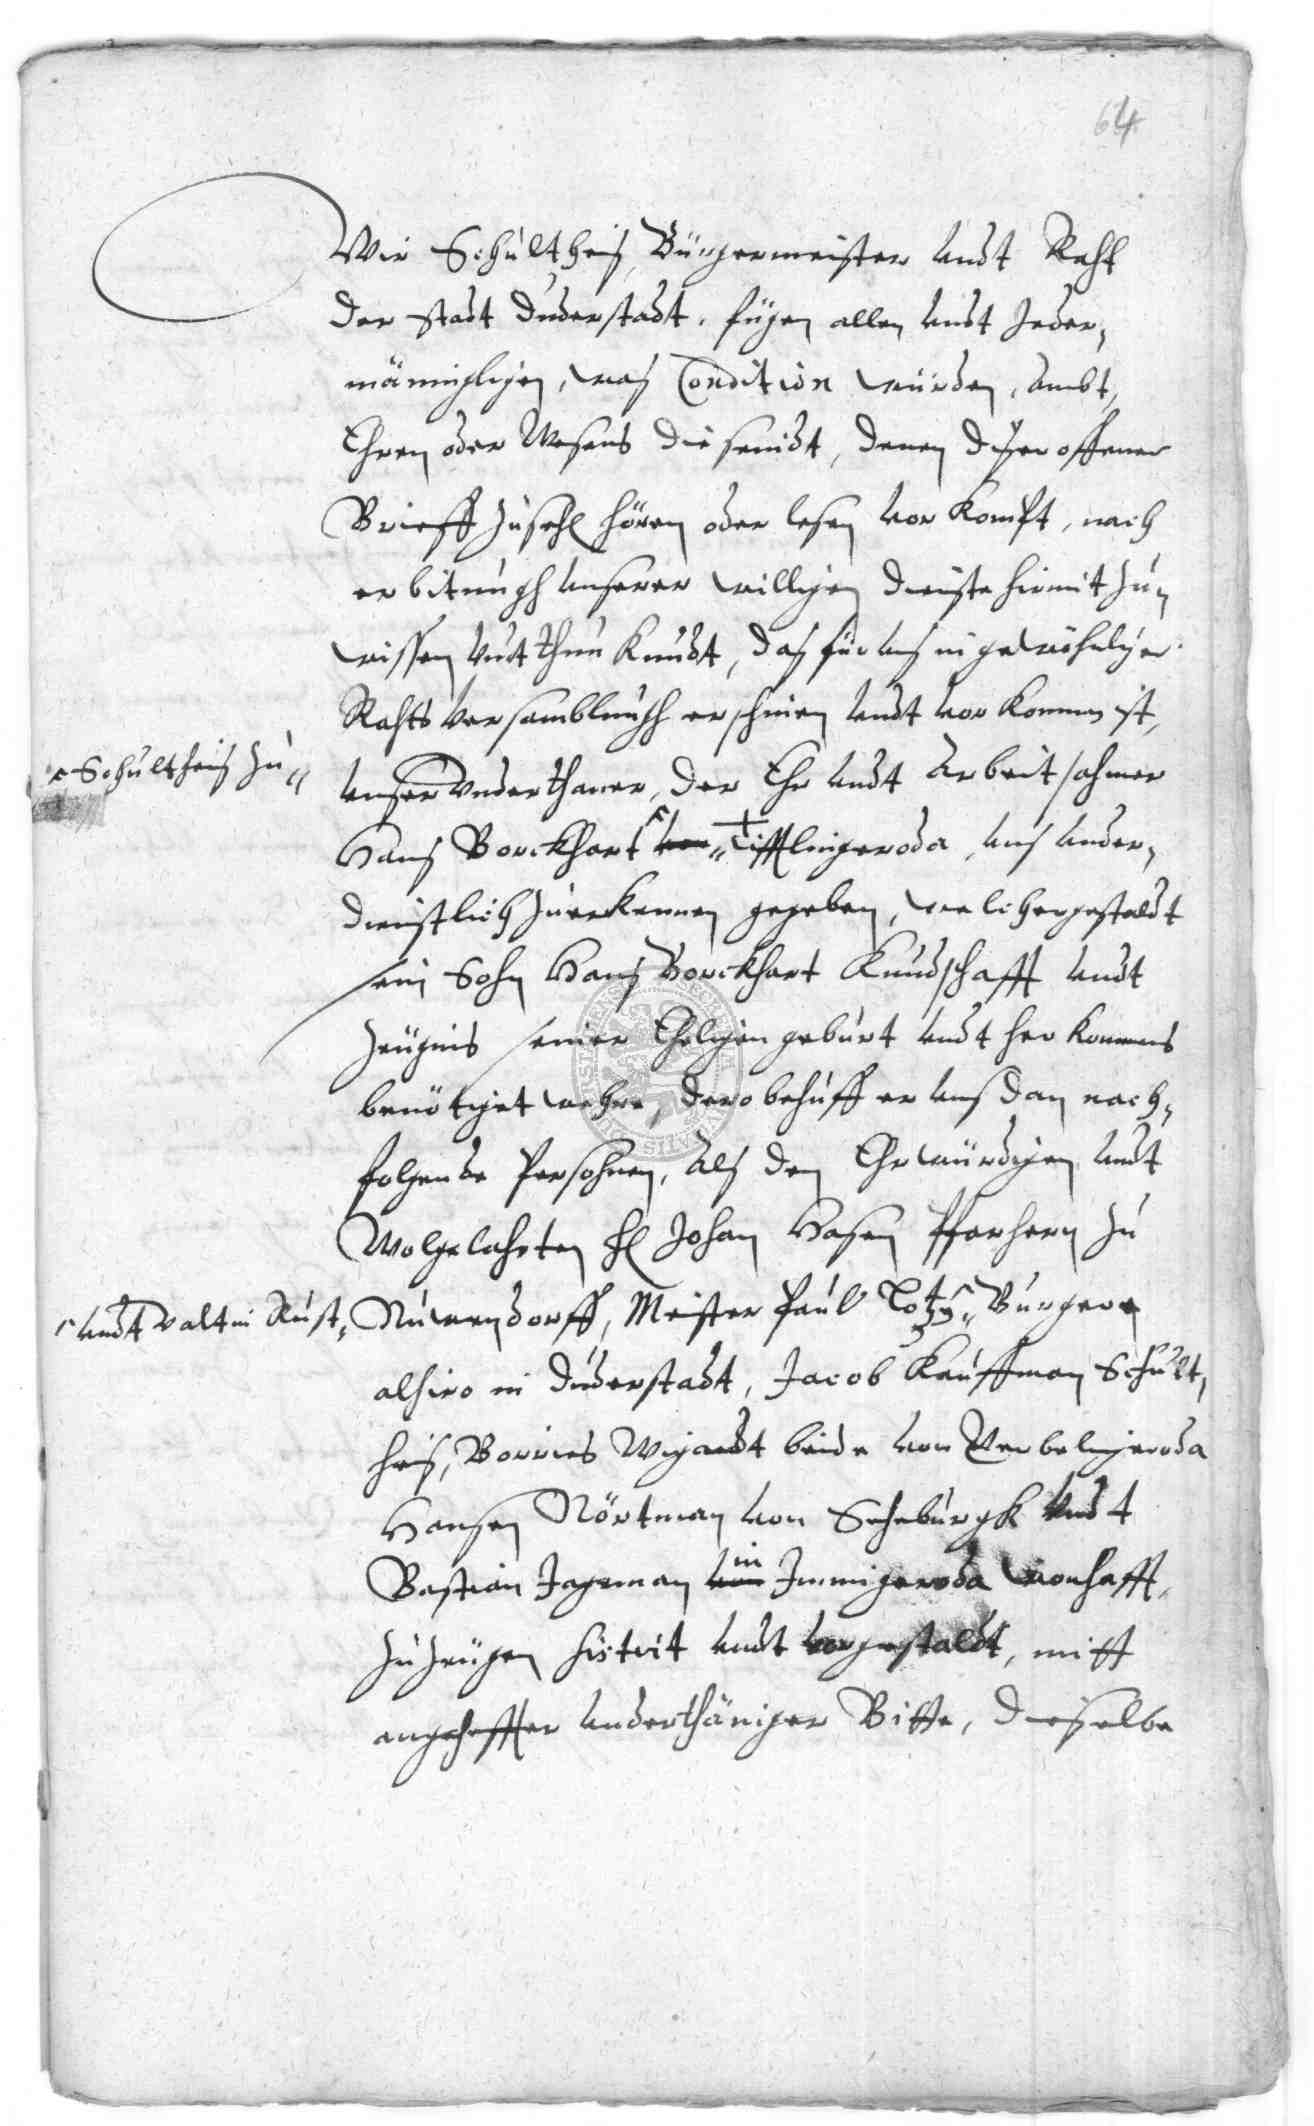 64
Wir Schultheis, Bürgermeister undt Raht
der stadt Duderstadt, fügen allen undt Jeder„
männiglichen, was Condition würden, ambt,
Ehren oder Wesens die seindt, denen diser offener
Brieff zu sehen hören oder lesen vor kompt, nach
erbitungh unserer willigen dienste hiemit zu„
wissen undt thun kundt, das für uns in gewöhnlicher
Rahts versamblungh erschienen undt vor kommen ist,
unser underthaner, der Ehr undt arbeitsahmer
Schultheis zu„
Hans Borckhart von Tifftlingeroda, uns under„
dienstlich zuerkennen gegeben, welchergestaldt
sein Sohn Hans Borckhart Kundtschafft undt
Zeugnis seiner Ehelichen geburt undt her kommens
benötiget wehre, dero behuff er uns dan nach„
folgende Persohnen, als den Ehrwürdigen undt
Wolgelahrten H. Johan Hasen Pfarhern zu
undt Valtin Rust„
Nuwendorff, Meister Paul Burgere
alhiro in Duderstadt, Jacob Kauffman Schult„
heis, Borries Wigandt beide von Werbelingeroda
Hansen Nörtman von Seheburgk undt
Bastian Jageman von in Immigeroda wonhafft,
zu Zeugen sistirt undt vorgestaldt, mitt
angehoffter underthäniger Bitte, Dieselbe